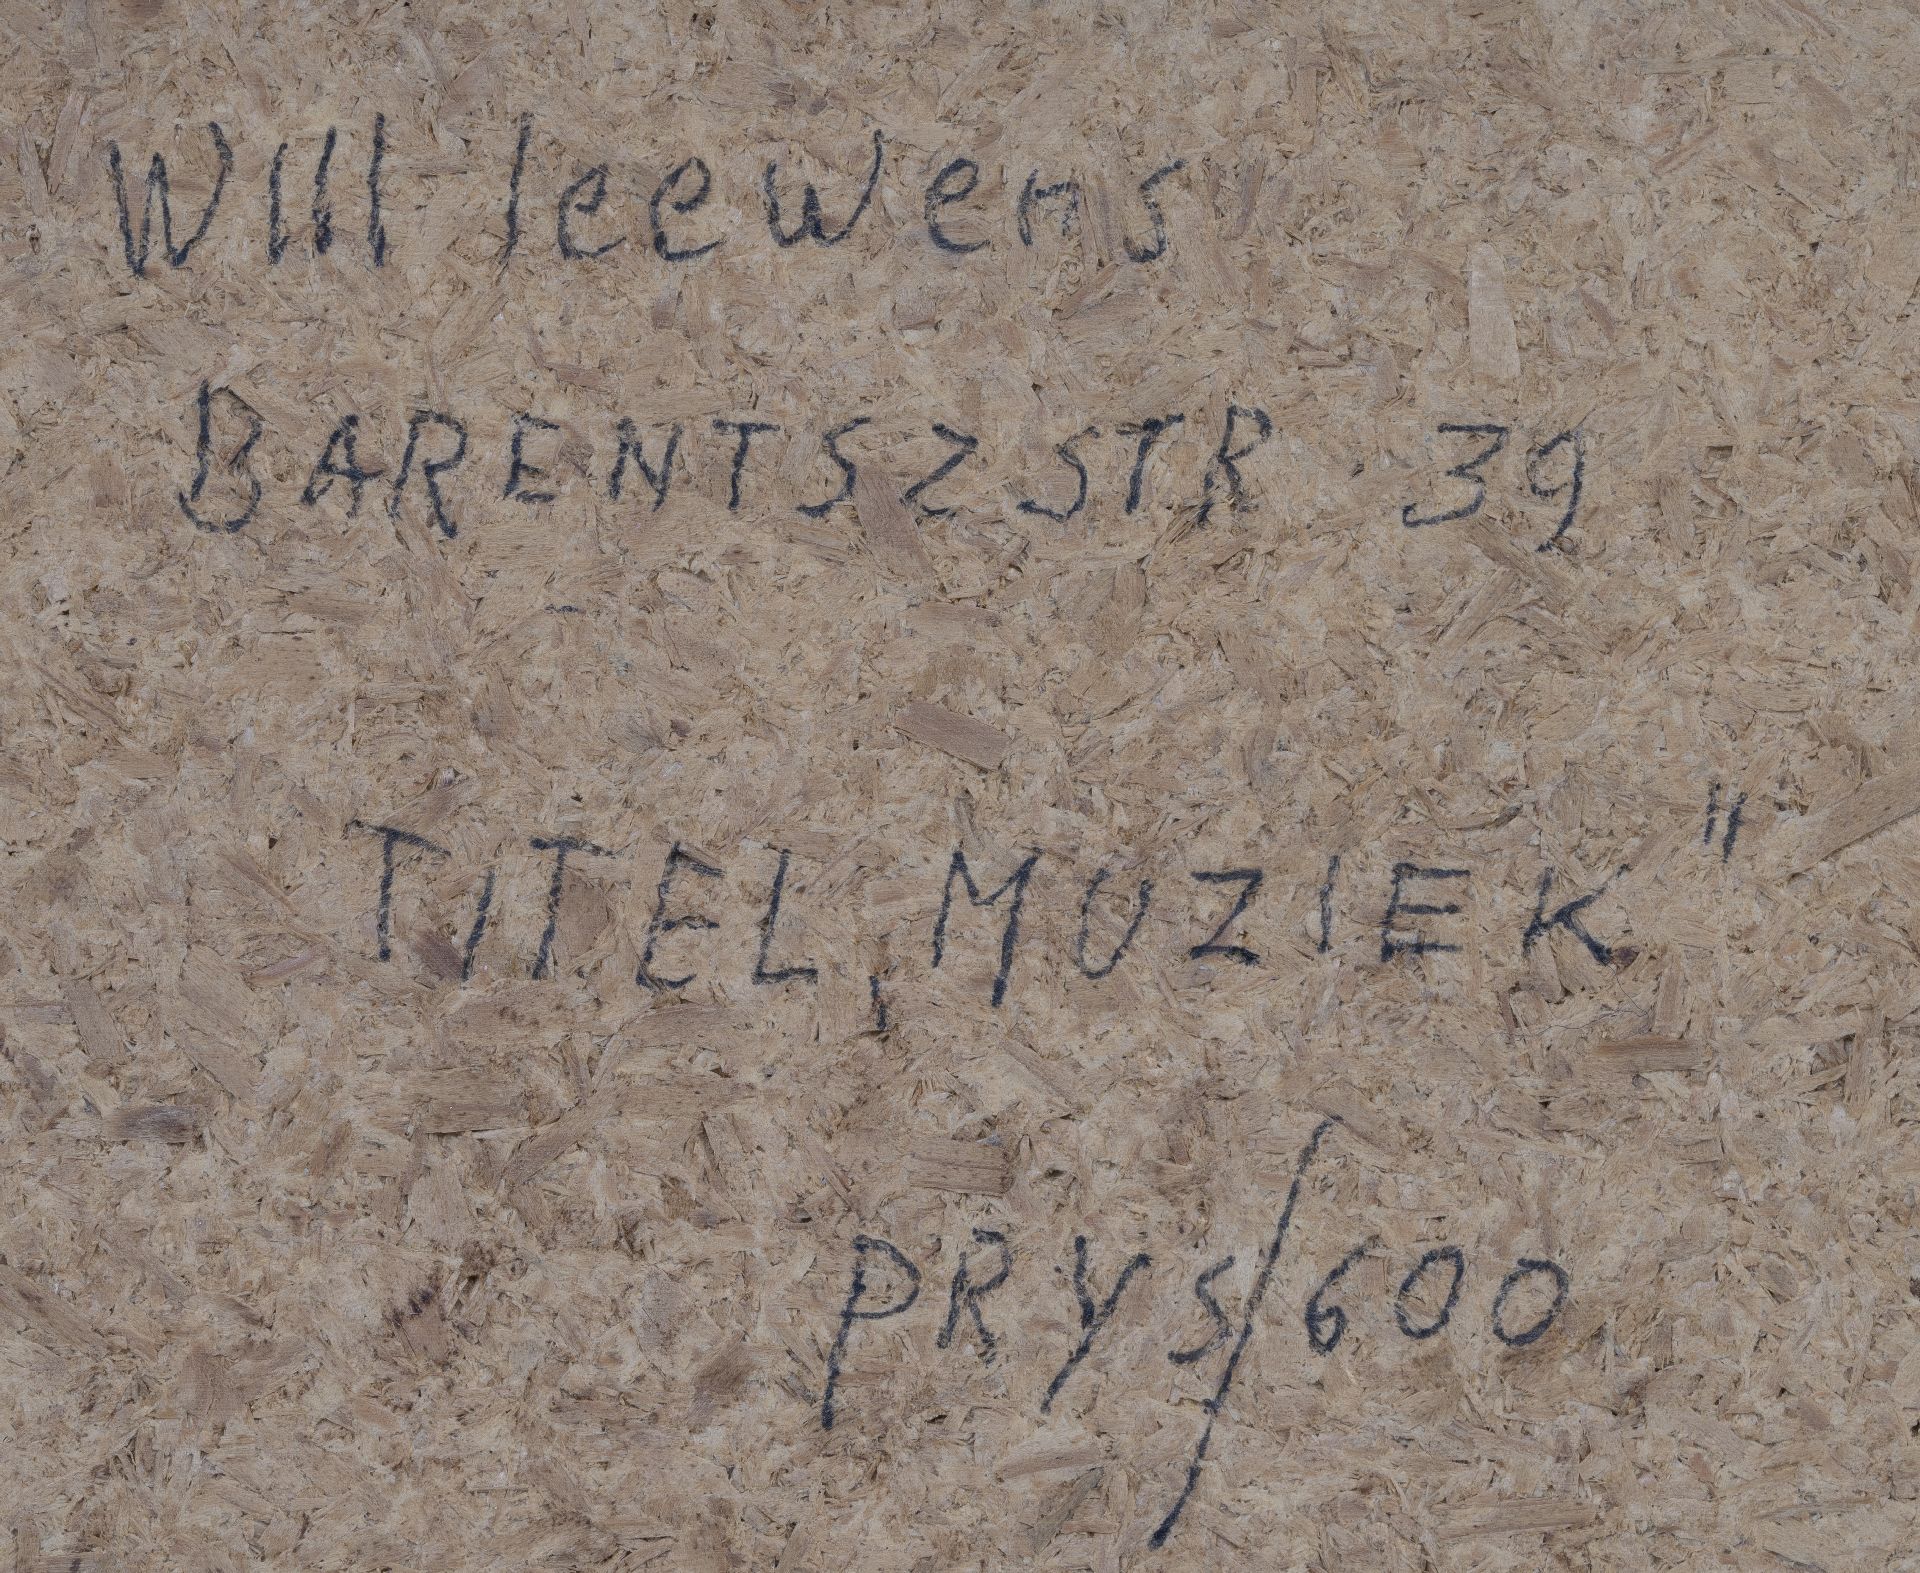 Will leewens
BARENTSZSTR 39
TITEL, MUZIEK"
PRYS/600